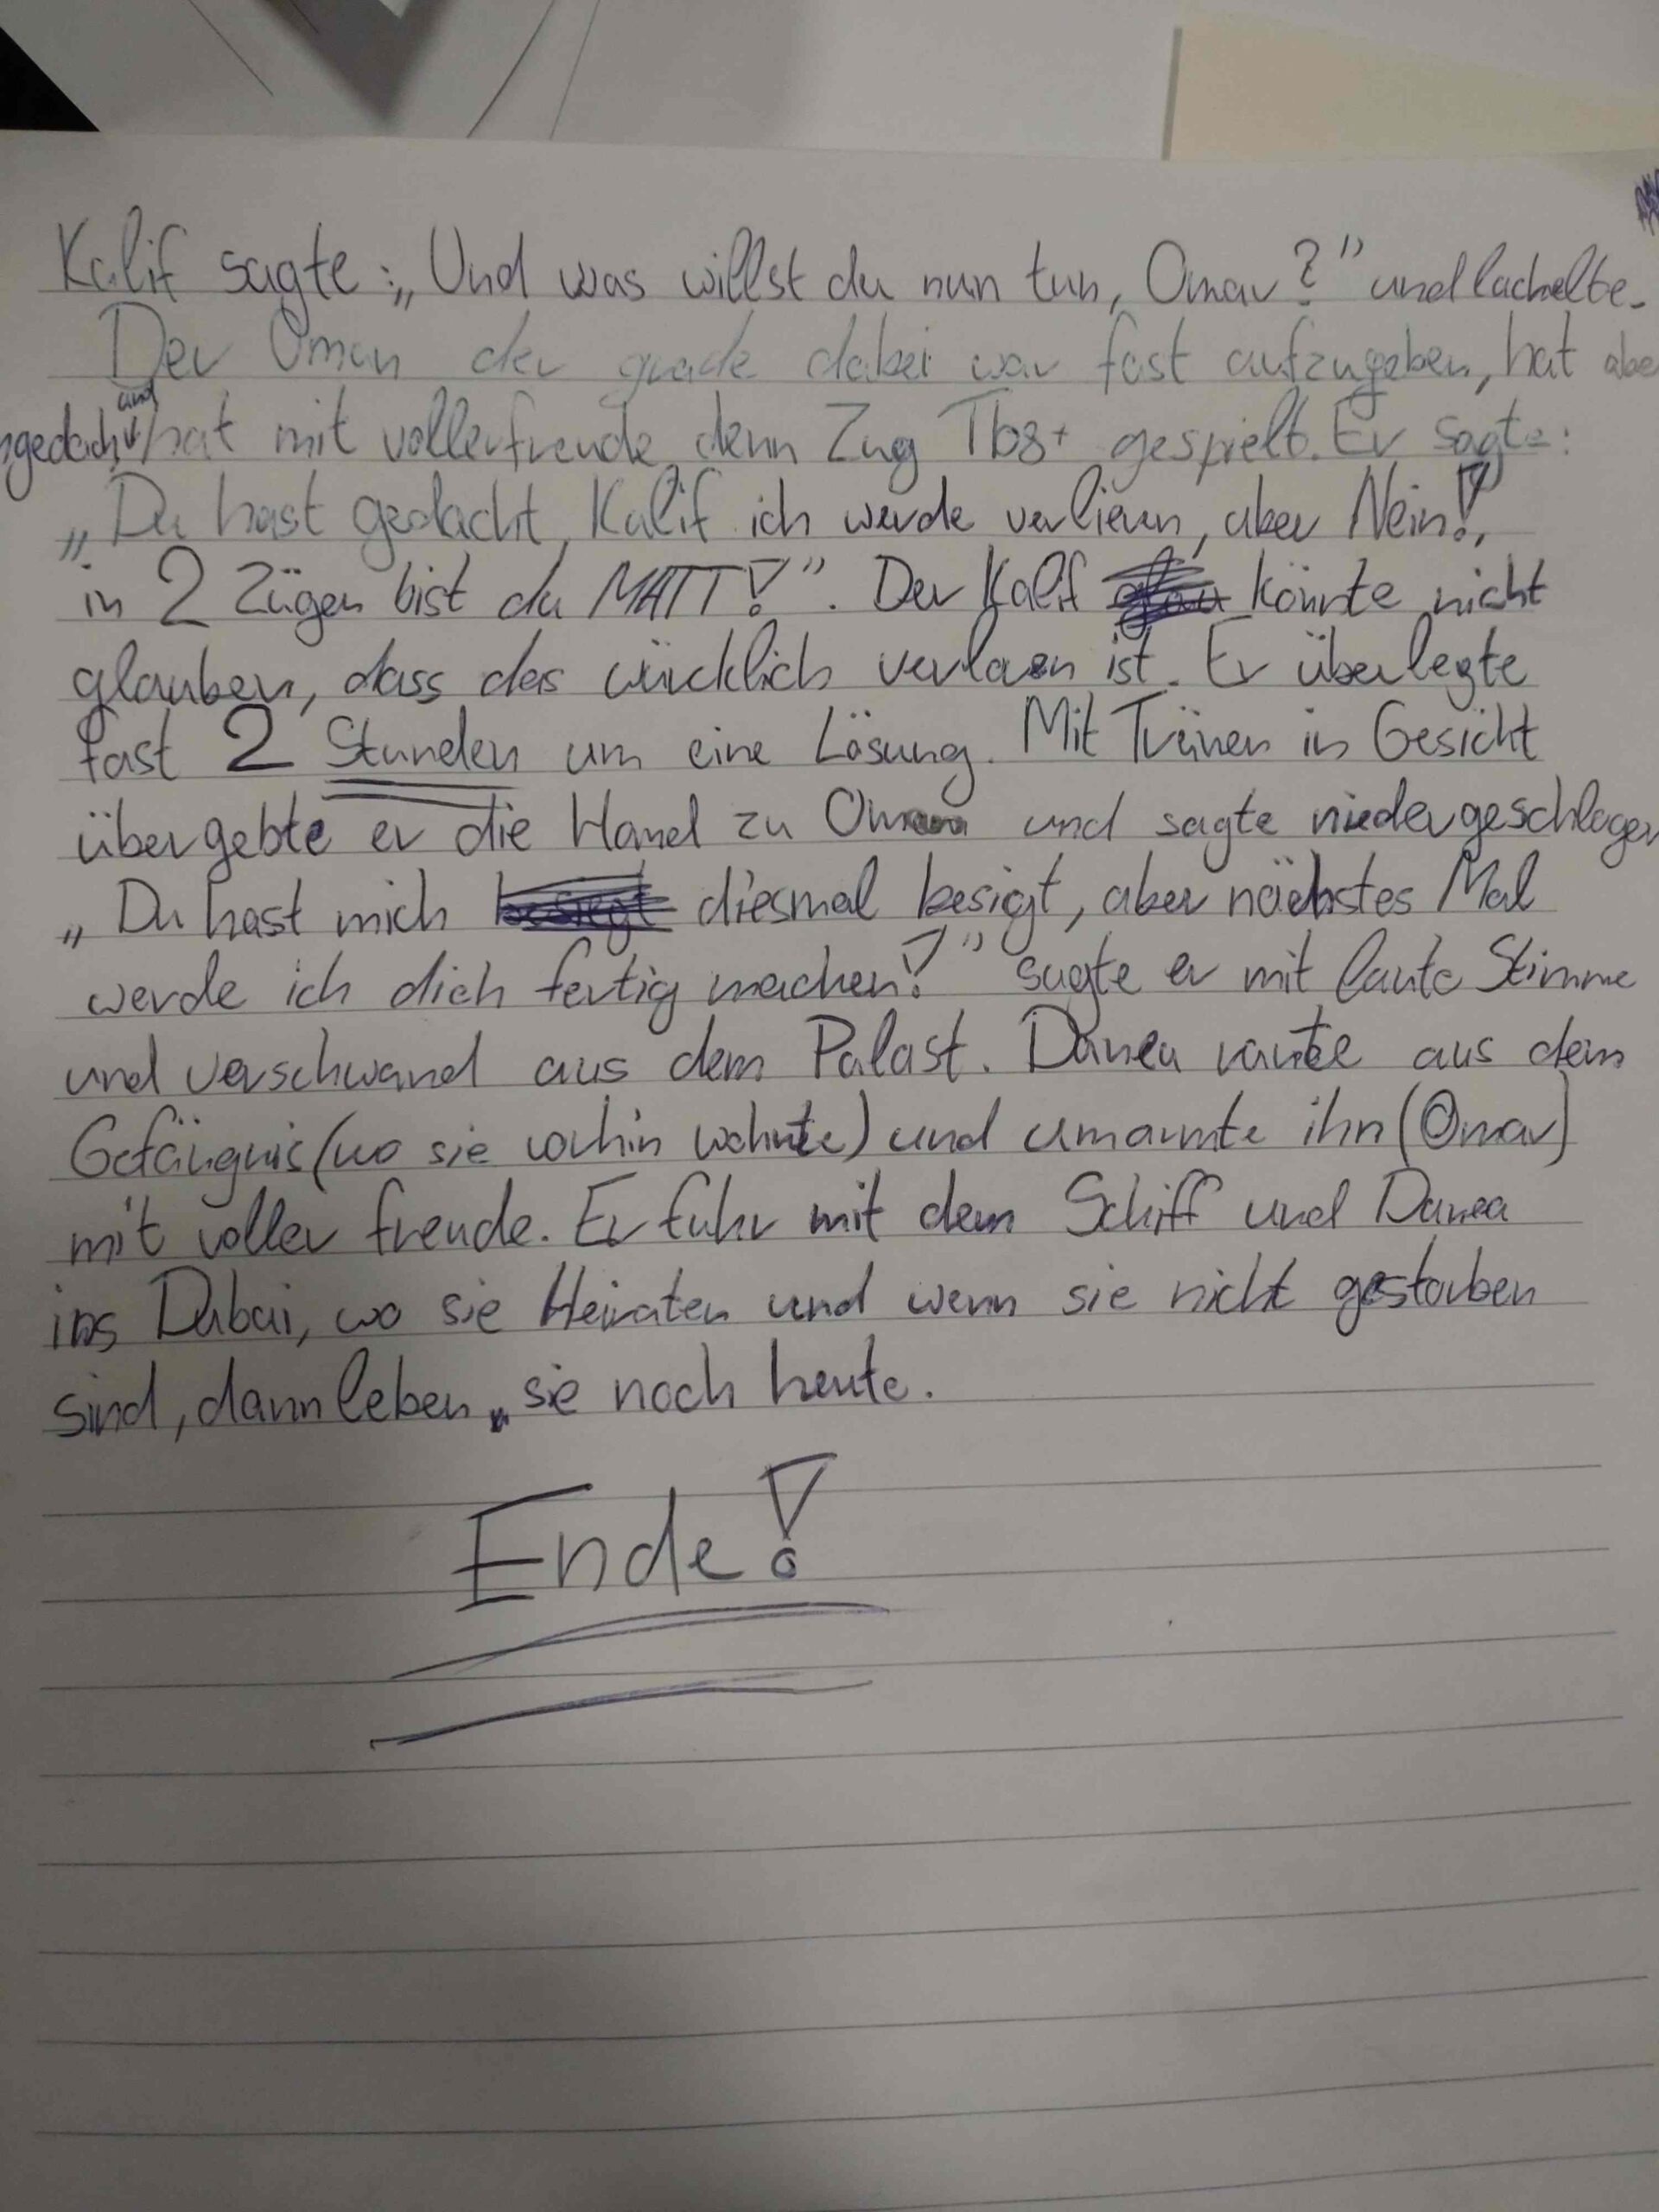 Kalif sagte: „Und was willst du nun tun, Omar?" und lachelte.
Der Omar der grade dabei war fast aufzugeben, hat aber
ngedacht und hat mit vollerfreude denn Zug Tb8+ gespielt. Er sagte:
„Du hast gedacht, Kalif ich werde verlieren, aber Nein!,
in 2 Zügen bist du MATT!". Der Kalif könnte nicht
glauben, dass das würcklich verloren ist. Er überlegte
fast 2 Stunden um eine Lösung. Mit Tränen in Gesicht
übergebte er die Hand zu Omar und sagte niedergeschlagen
„Du hast mich diesmal besigt, aber nächstes Mal
werde ich dich fertig machen!" sagte er mit laute Stimme
und verschwand aus dem Palast. Danea rante aus dem
Gefängnis (wo sie vorhin wohnte) und umarmte ihn (Omar)
mit voller freude. Er fuhr mit dem Schiff und Danea
ins Dubai, wo sie Heiraten und wenn sie nicht gestorben
sind, dann leben sie noch heute.
Ende!